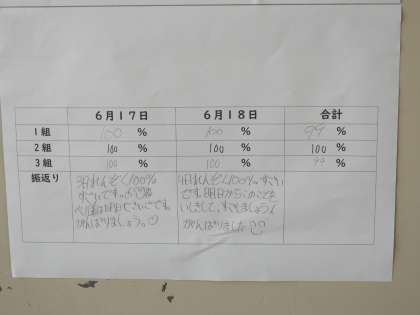 6月17日 6月18日 合計
1組 100 % 100 % 99 %
2組 100 % 100 % 100 %
3組 100 % 100 % 99 %
振返り
3日れんぞく100%
すごいですっ
がんばりましょう。
4日れんぞく100%。すごい
です。明日からこのことを
いしきして、すごしましょう
がんばりました